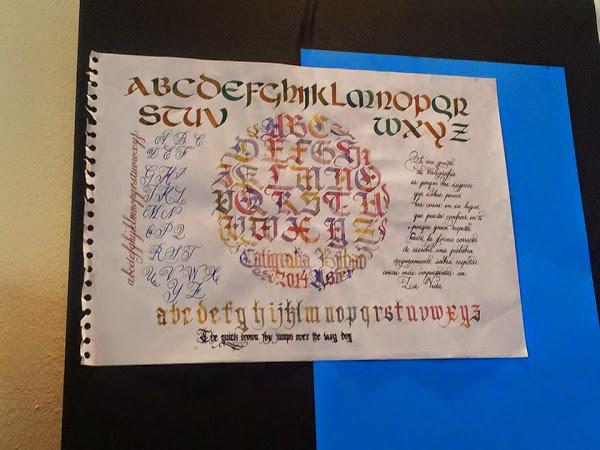 ABCDEFGHIJKLMNOPQR
STUV WXYZ
abcdefghijklmnopqrstuvwxyz
A B C
D E F
G H I
J K L
M N
O P Q
R S T
U V W X
Y Z
ABC
DEFGH
IJKLMNÑ
OPQRSTU
VWXYZ
Caligrafia Bilbao
2014 Aster
me gusta
la Caligrafía
es porque me sugiere
que sabes poner
las cosas en su lugar
que puedo confiar en ti
porque quien respeta
tanto la forma correcta
de escribir una palabra
seguramente sabrá respetar
cosas más importantes en
La Vida
abcdefghijklmnopqrstuvwxyz
The quick brown fox jumps over the lazy dog